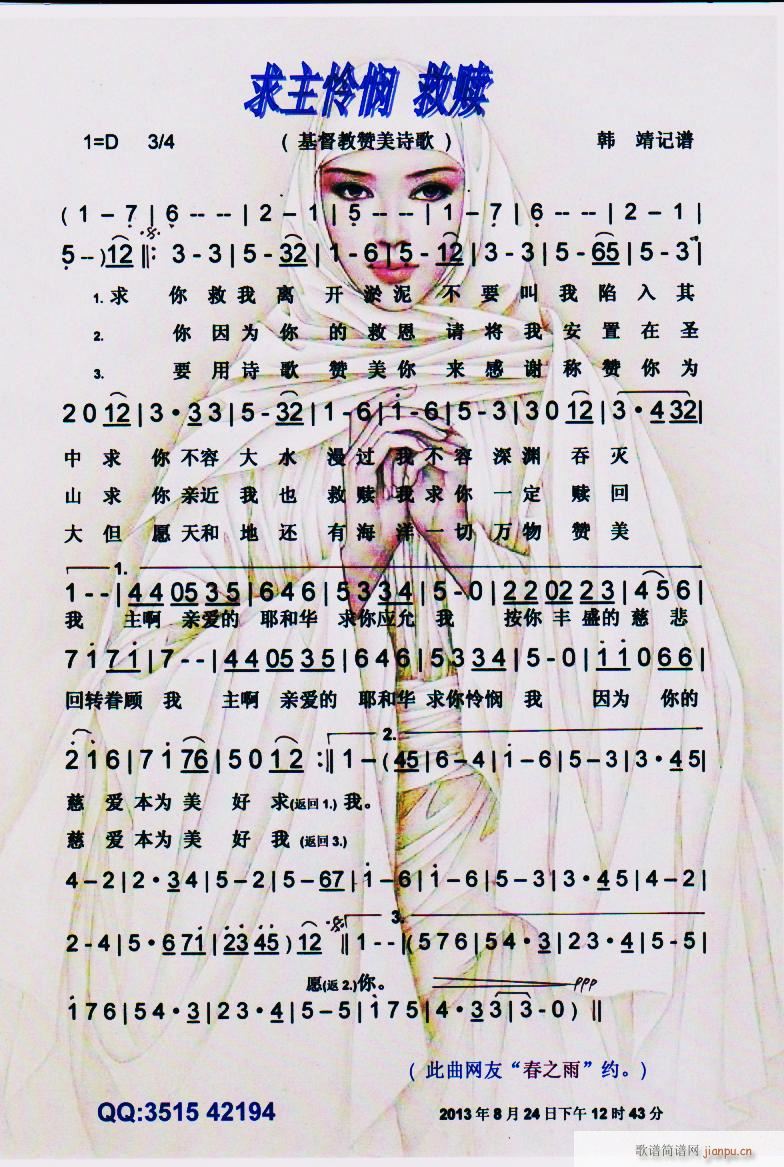 求主怜悯 救赎
1=D 3/4 ( 基督教赞美诗歌 ) 韩 靖记谱
( 1 – 7 | 6 - - - | 2 – 1 | 5 - - - | 1 – 7 | 6 - - - | 2 – 1 |
5 - - ) 12 ‖: 3 - 3 | 5 - 32 | 1 - 6 | 5 - 12 | 3 - 3 | 5 - 65 | 5 - 3 |
1. 求 你 救 我 离 开 淤 泥 不 要 叫 我 陷 入 其
2. 你 因 为 你 的 救 恩 请 将 我 安 置 在 圣
3. 要 用 诗 歌 赞 美 你 来 感 谢 称 赞 你 为
2 0 12 | 3 · 3 3 | 5 - 32 | 1 - 6 | 1 - 6 | 5 - 3 | 3 0 12 | 3 · 4 32 |
中 求 你 不容 大 水 漫 过 我 不 容 深 渊 吞 灭
山 求 你 亲近 我 也 救 赎 我 求 你 一 定 赎 回
大 但 愿 天和 地 还 有 海 洋 一 切 万 物 赞 美
1.
1 - - | 4 4 05 3 5 | 6 4 6 | 5 3 3 4 | 5 - 0 | 2 2 02 2 3 | 4 5 6 |
我 主啊 亲爱的 耶和华 求你应允 我 按你 丰盛的 慈 悲
7 1 7 1 | 7 - - | 4 4 05 3 5 | 6 4 6 | 5 3 3 4 | 5 - 0 | 1 1 0 6 6 |
回转眷顾 我 主啊 亲爱的 耶和华 求你怜悯 我 因为 你的
2.
2 1 6 | 7 1 76 | 5 0 12 :‖ 1 – ( 45 | 6 – 4 | 1 – 6 | 5 – 3 | 3 · 4 5 |
慈 爱 本为 美 好 求(返回 1.) 我。
慈 爱 本为 美 好 我 (返回 3.)
4 – 2 | 2 · 3 4 | 5 – 2 | 5 – 67 | 1 – 6 | 1 – 6 | 5 – 3 | 3 · 4 5 | 4 – 2 |
3.
2 - 4 | 5 · 6 71 | 23 45 ) 12 ‖ 1 - - | ( 5 7 6 | 5 4 · 3 | 2 3 · 4 | 5 - 5 |
愿(返 2.)你。 ppp
1 7 6 | 5 4 · 3 | 2 3 · 4 | 5 – 5 | 1 7 5 | 4 · 3 3 | 3 - 0 ) ‖
( 此曲网友“春之雨”约。)
QQ:3515 42194 2013 年 8 月 24 日下午 12 时 43 分
歌谱简谱网 jianpu.cn